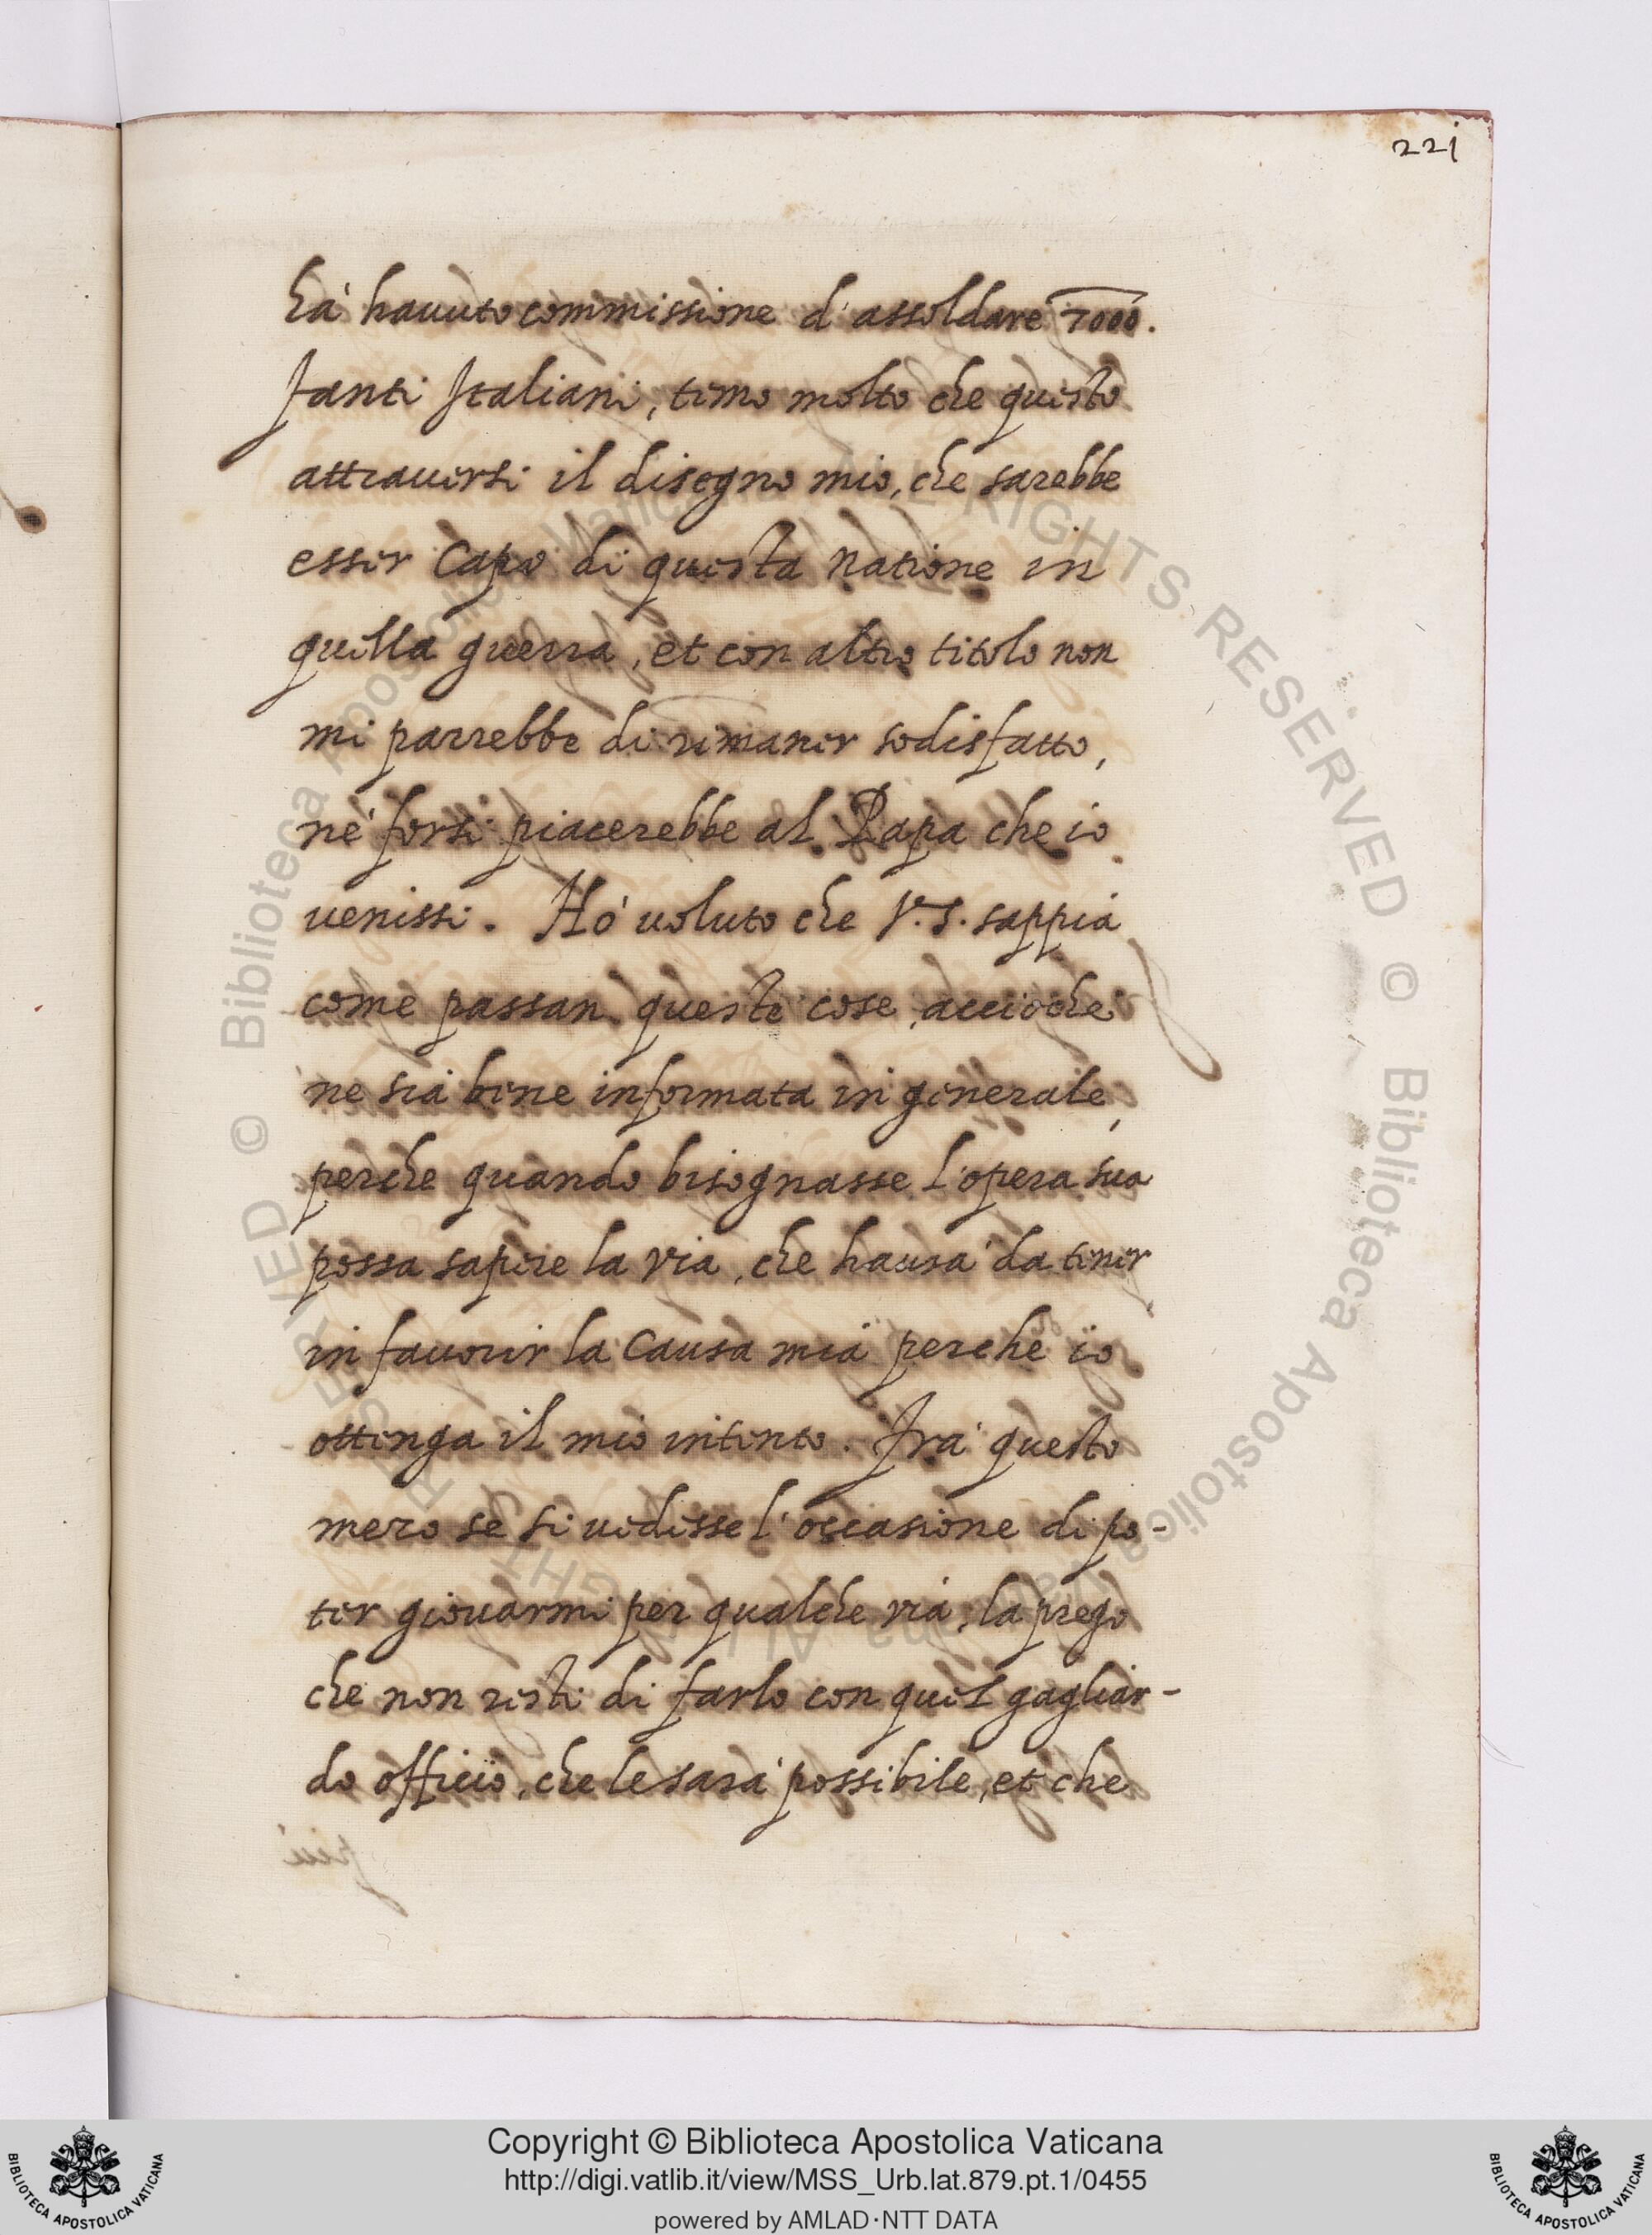 221
hà hauuto commissione d'assoldare 7000.
fanti Italiani, temo molto che questo
attrauersi il disegno mio, che sarebbe
esser Capo di questa natione in
quella guerra, et con altro titolo non
mi parrebbe di rimaner sodisfatto,
nè forsi piacerebbe al Papa che io
uenissi. Hò uoluto che V.S. sappia
come passan queste cose, acciochè
ne sia bene informata in generale,
perche quando bisognasse l'opera sua
possa sapere la via, che haurà da tener
in fauorir la causa mia perche io
ottenga il mio intento. Frà questo
mezo se si uedesse l'occasione di po-
ter giouarmi per qualche via, la prego
che non resti di farlo con quel gagliar-
do officio, che le sarà possibile, et che
Copyright © Biblioteca Apostolica Vaticana
http://digi.vatlib.it/view/MSS_Urb.lat.879.pt.1/0455
powered by AMLAD·NTT DATA
BIBLIOTECA APOSTOLICA VATICANA
BIBLIOTECA APOSTOLICA VATICANA
© Biblioteca Apostolica Vaticana ALL RIGHTS RESERVED
© Biblioteca Apostolica Vaticana ALL RIGHTS RESERVED